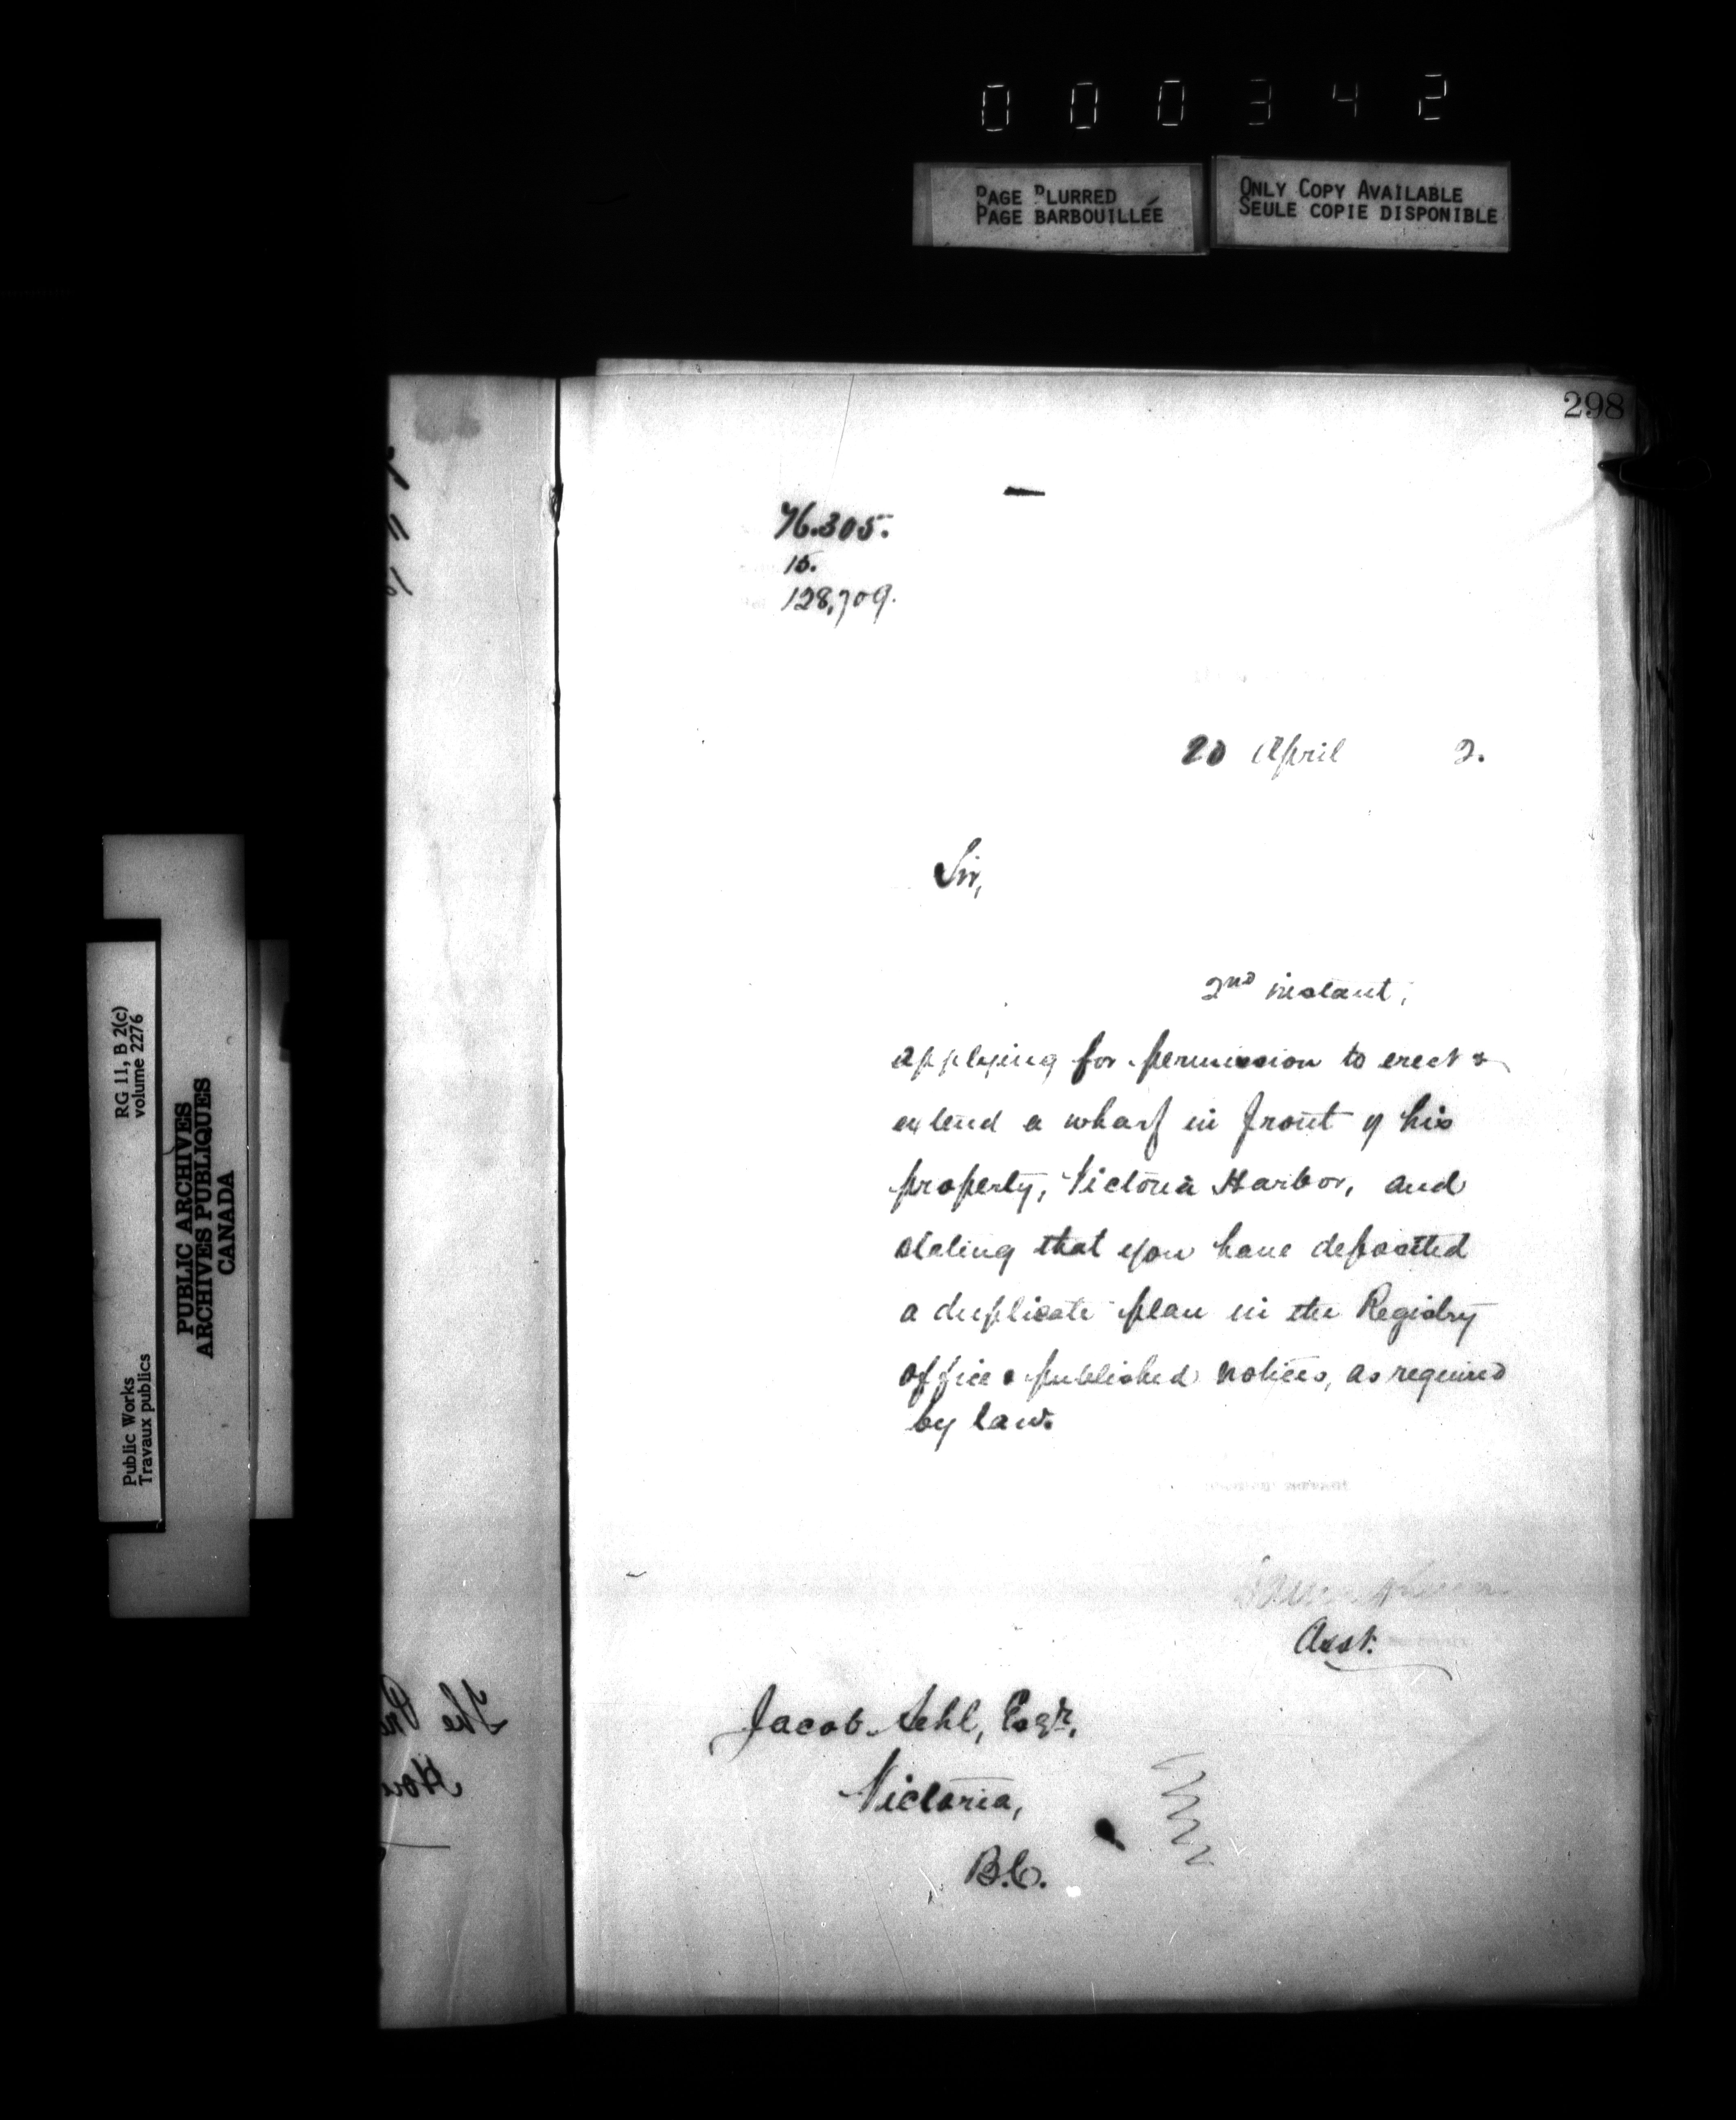 000342
PAGE BLURRED
PAGE BARBOUILLÉE
ONLY COPY AVAILABLE
SEULE COPIE DISPONIBLE
298
76.305.
15.
128,709.
20 April 2.
Sir,
2nd instant,
applying for permission to erect &
extend a wharf in front of his
property, Victoria Harbor, and
stating that you have deposited
a duplicate plan in the Registry
office & published notices, as required
by law.
Asst.
Jacob Sehl, Esqr,
Victoria,
B.C.
RG 11, B 2(c)
volume 2276
PUBLIC ARCHIVES
ARCHIVES PUBLIQUES
CANADA
Public Works
Travaux publics